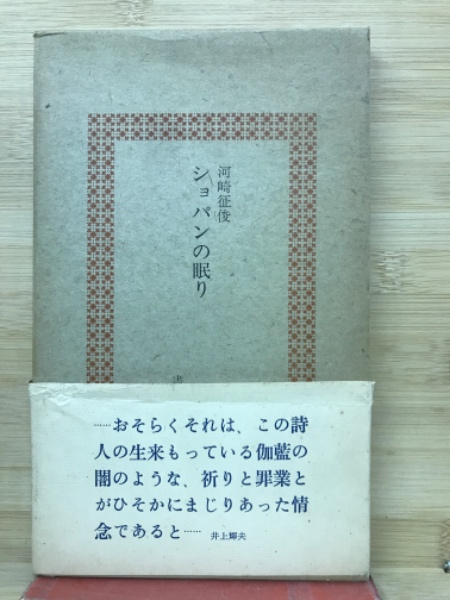 河崎征俊
ショパンの眠り
……おそらくそれは、この詩
人の生来もっている伽藍の
闇のような、祈りと罪業と
がひそかにまじりあった情
念であると……
井上輝夫